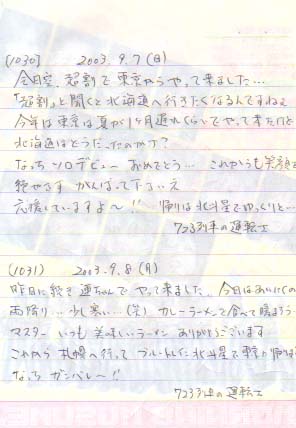 [1030] 2003.9.7(日)
今日空、超割で東京からやって来ました…
「超割」と聞くと北海道へ行きたくなるんですねぇ
今年は東京は夏が1ヶ月遅れくらいでやって来たけど
北海道はどうだったのかナ?
なっち ソロデビュー おめでとう… これからも笑顔を
絶やさず がんばって下さいえ
応援していますよ〜!! 帰りは北斗星でゆっくりと…
7223列車の運転士
(1031) 2003.9.8(月)
昨日に続き連ちゃんでやって来ました。今日はあいにくの
雨降り…少し寒い…(笑) カレーラーメンで食べて暖まろう…
マスター いつも美味しいラーメン ありがとうございます
これから 札幌へ行って ブルートレイン北斗星で東京に帰ります
なっち ガンバレ〜!!
7223列車の運転士